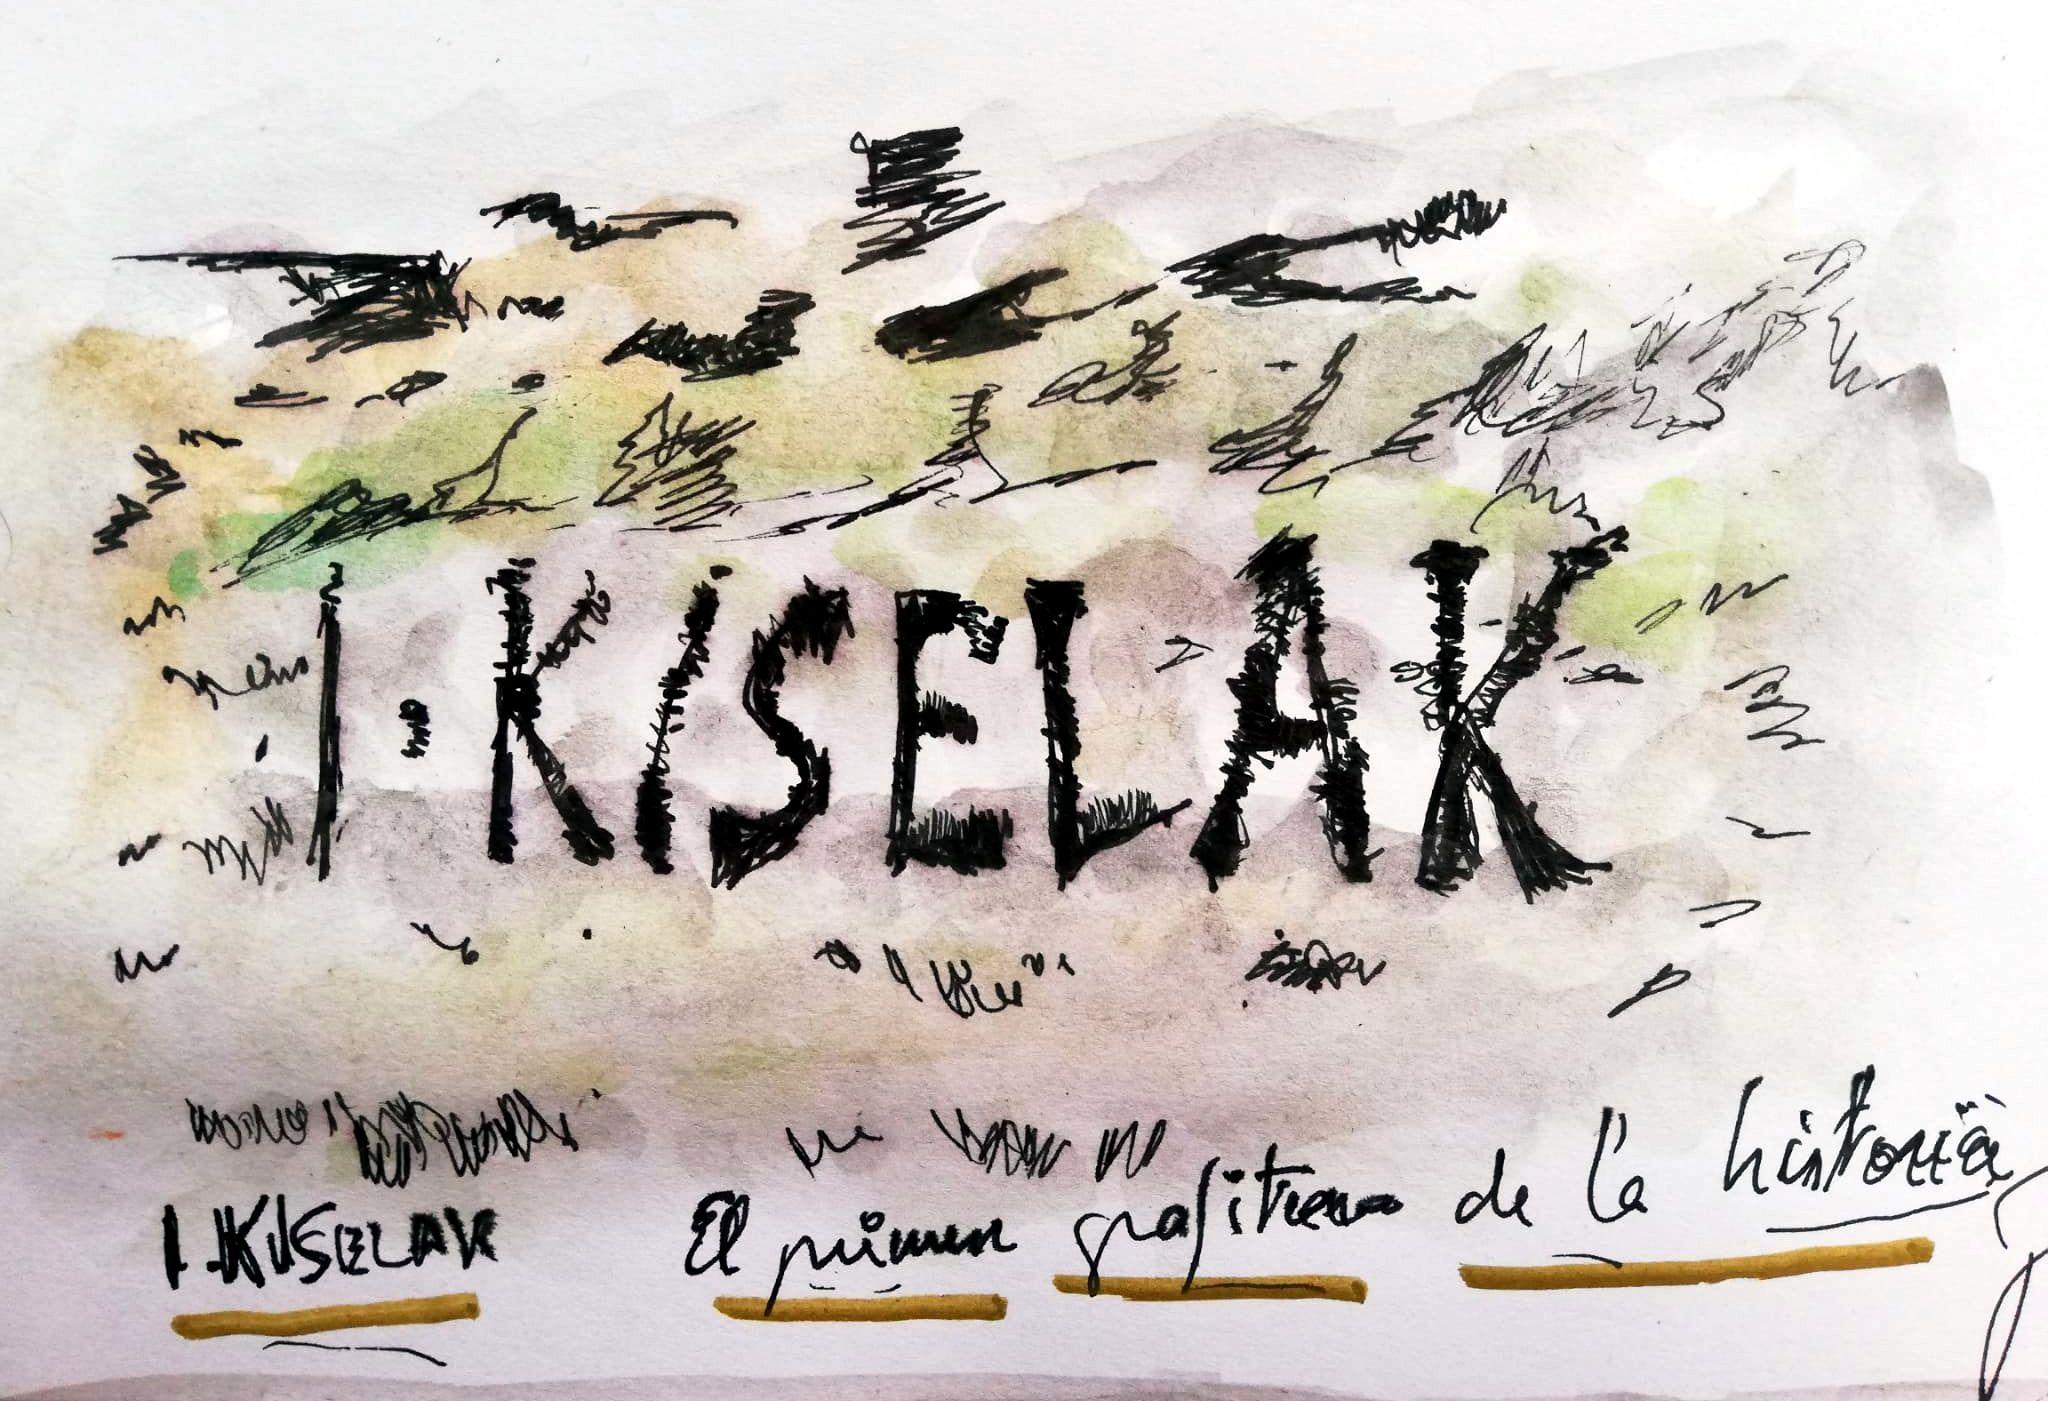 I. KISELAK
I. KISELAK El primer grafitero de la historia